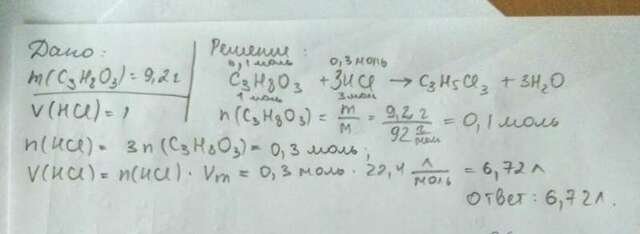 Дано:
m(C₃H₈O₃) = 9,2 г
V(HCl) = ?
Решение:
0,1 моль 0,3 моль
C₃H₈O₃ + 3HCl → C₃H₅Cl₃ + 3H₂O
1 моль 3 моль
n(C₃H₈O₃) = m/M = 9,2 г / 92 г/моль = 0,1 моль
n(HCl) = 3n(C₃H₈O₃) = 0,3 моль;
V(HCl) = n(HCl) · Vm = 0,3 моль · 22,4 л/моль = 6,72 л
Ответ: 6,72 л.